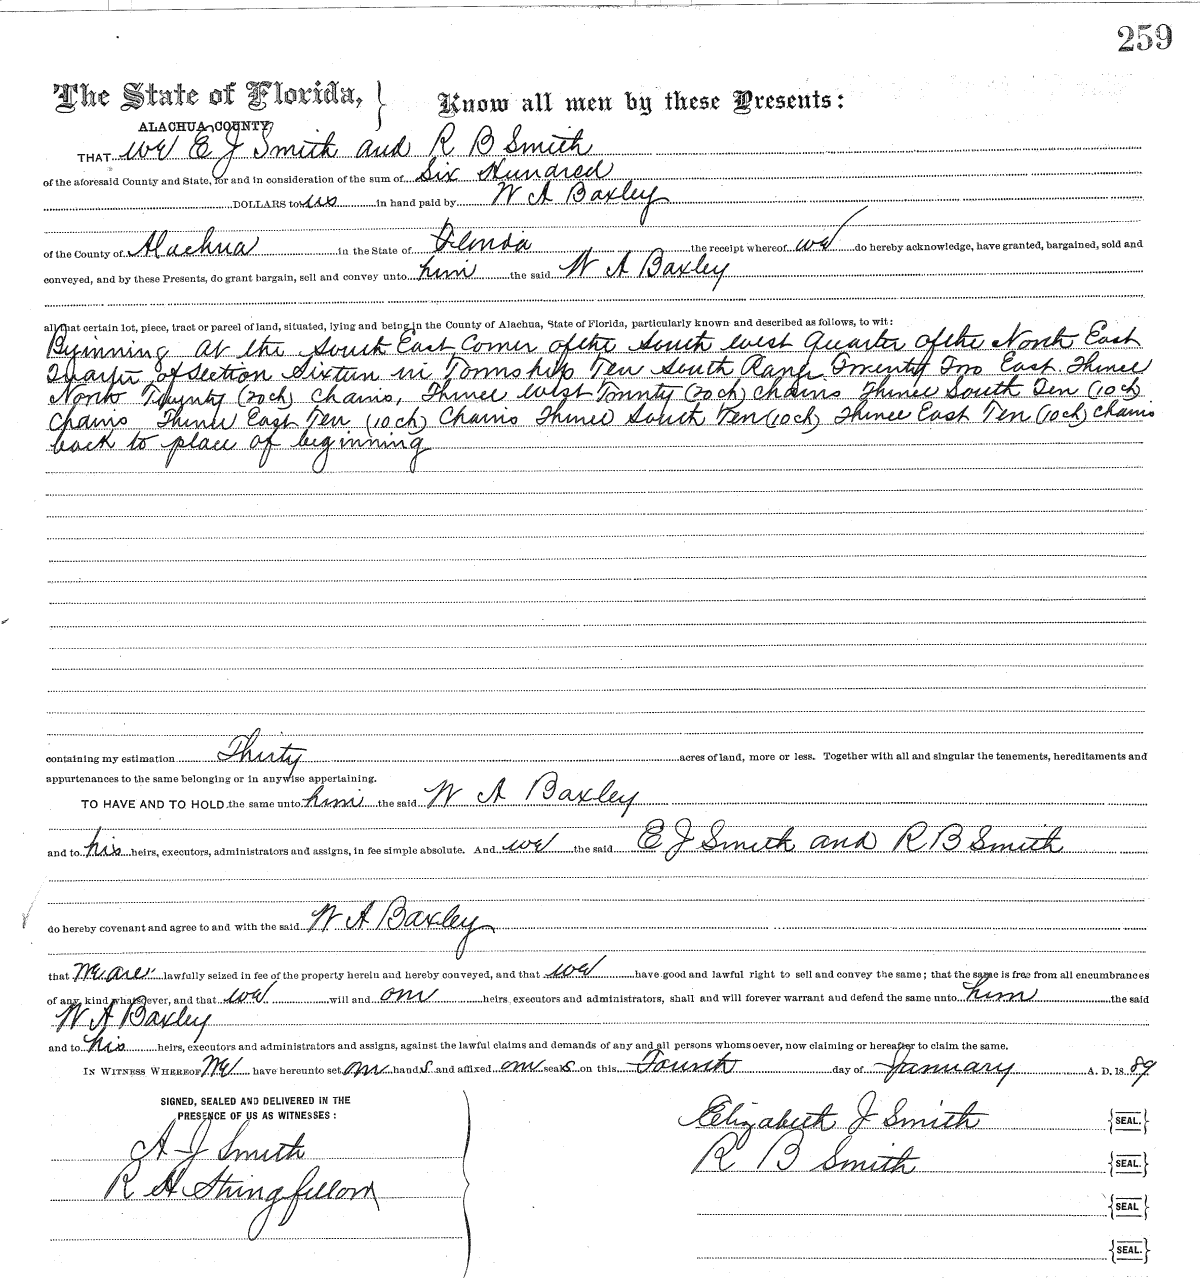 259
The State of Florida, } Know all men by these Presents:
ALACHUA COUNTY,
THAT we E J Smith and R B Smith
of the aforesaid County and State, for and in consideration of the sum of Six Hundred
DOLLARS to us in hand paid by W A Baxley
of the County of Alachua in the State of Florida the receipt whereof we do hereby acknowledge, have granted, bargained, sold and
conveyed, and by these Presents, do grant bargain, sell and convey unto him the said W A Baxley
all that certain lot, piece, tract or parcel of land, situated, lying and being in the County of Alachua, State of Florida, particularly known and described as follows, to wit:
Beginning at the South East Corner of the South west Quarter of the North East
Quarter of Section Sixteen in Township Ten South Range Twenty Two East. Thence
North Twenty (20 ch) Chains, Thence west Twenty (20 ch) chains Thence South Ten (10 ch)
Chains Thence East Ten (10 ch) Chains Thence South Ten (10 ch) Thence East Ten (10 ch) chains
back to place of beginning
containing my estimation Thirty acres of land, more or less. Together with all and singular the tenements, hereditaments and
appurtenances to the same belonging or in anywise appertaining.
TO HAVE AND TO HOLD the same unto him the said W A Baxley
and to his heirs, executors, administrators and assigns, in fee simple absolute. And we the said E J Smith and R B Smith
do hereby covenant and agree to and with the said W A Baxley
that We are lawfully seized in fee of the property herein and hereby conveyed, and that we have good and lawful right to sell and convey the same; that the same is free from all encumbrances
of any kind whatsoever, and that we will and our heirs executors and administrators, shall and will forever warrant and defend the same unto him the said
W A Baxley
and to his heirs, executors and administrators and assigns, against the lawful claims and demands of any and all persons whomsoever, now claiming or hereafter to claim the same.
IN WITNESS WHEREOF We have hereunto set our hands and affixed our seals on this Fourth day of January A. D. 18 89
SIGNED, SEALED AND DELIVERED IN THE
PRESENCE OF US AS WITNESSES:
A J Smith
R H Stringfellow
Elizabeth J Smith {SEAL.}
R B Smith {SEAL.}
{SEAL}
{SEAL.}